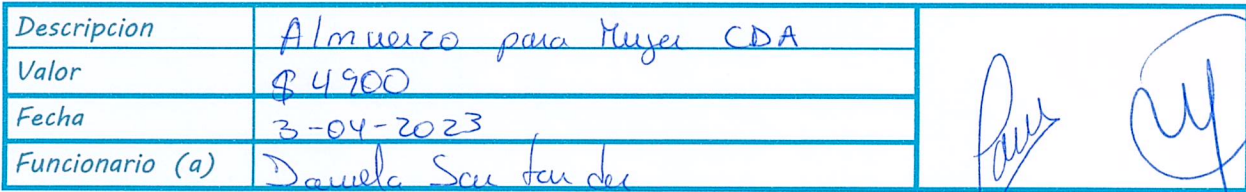 Descripcion Almuerzo para Mujer CDA
Valor $ 4900
Fecha 3-04-2023
Funcionario (a) Daniela Santander